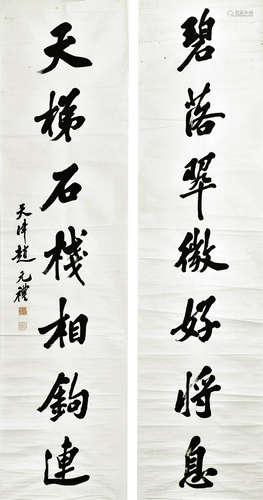 碧落翠微好將息
天梯石棧相鉤連
天津趙元禮